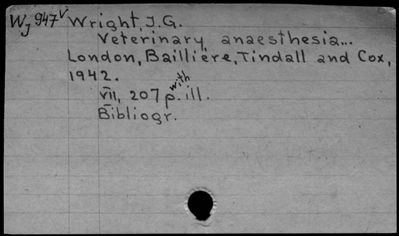 Wj 947v Wright, J.G.
Veterinary anaesthesia...
London, Baillière, Tindall and Cox,
1942.
VII, 207 p. with ill.
Bibliogr.